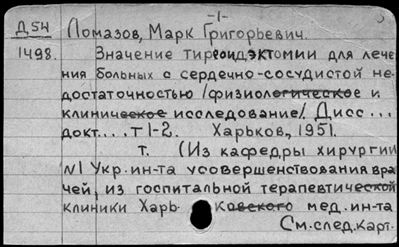 -1-
Д54 Ломазов, Марк Григорьевич.
1498. Значение тиреоидэктомии для лече
ния больных с сердечно-сосудистой не-
достаточностью /физиологическое и
клиническое исследование/. Дисс...
докт... т 1-2. Харьков, 1951.
т. (Из кафедры хирургии
N1 Укр.ин-та усовершенствования вра
чей, из госпитальной терапевтической
клиники Харьковского мед. ин-та
См.след.карт.